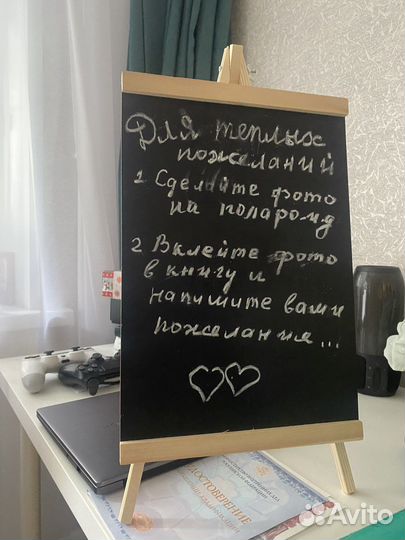 Для теплых
пожеланий
1 Сделайте фото
на полароид
2 Вклейте фото
в книгу и
напишите ваши
пожелания...
УДОСТОВЕРЕНИЕ
Avito